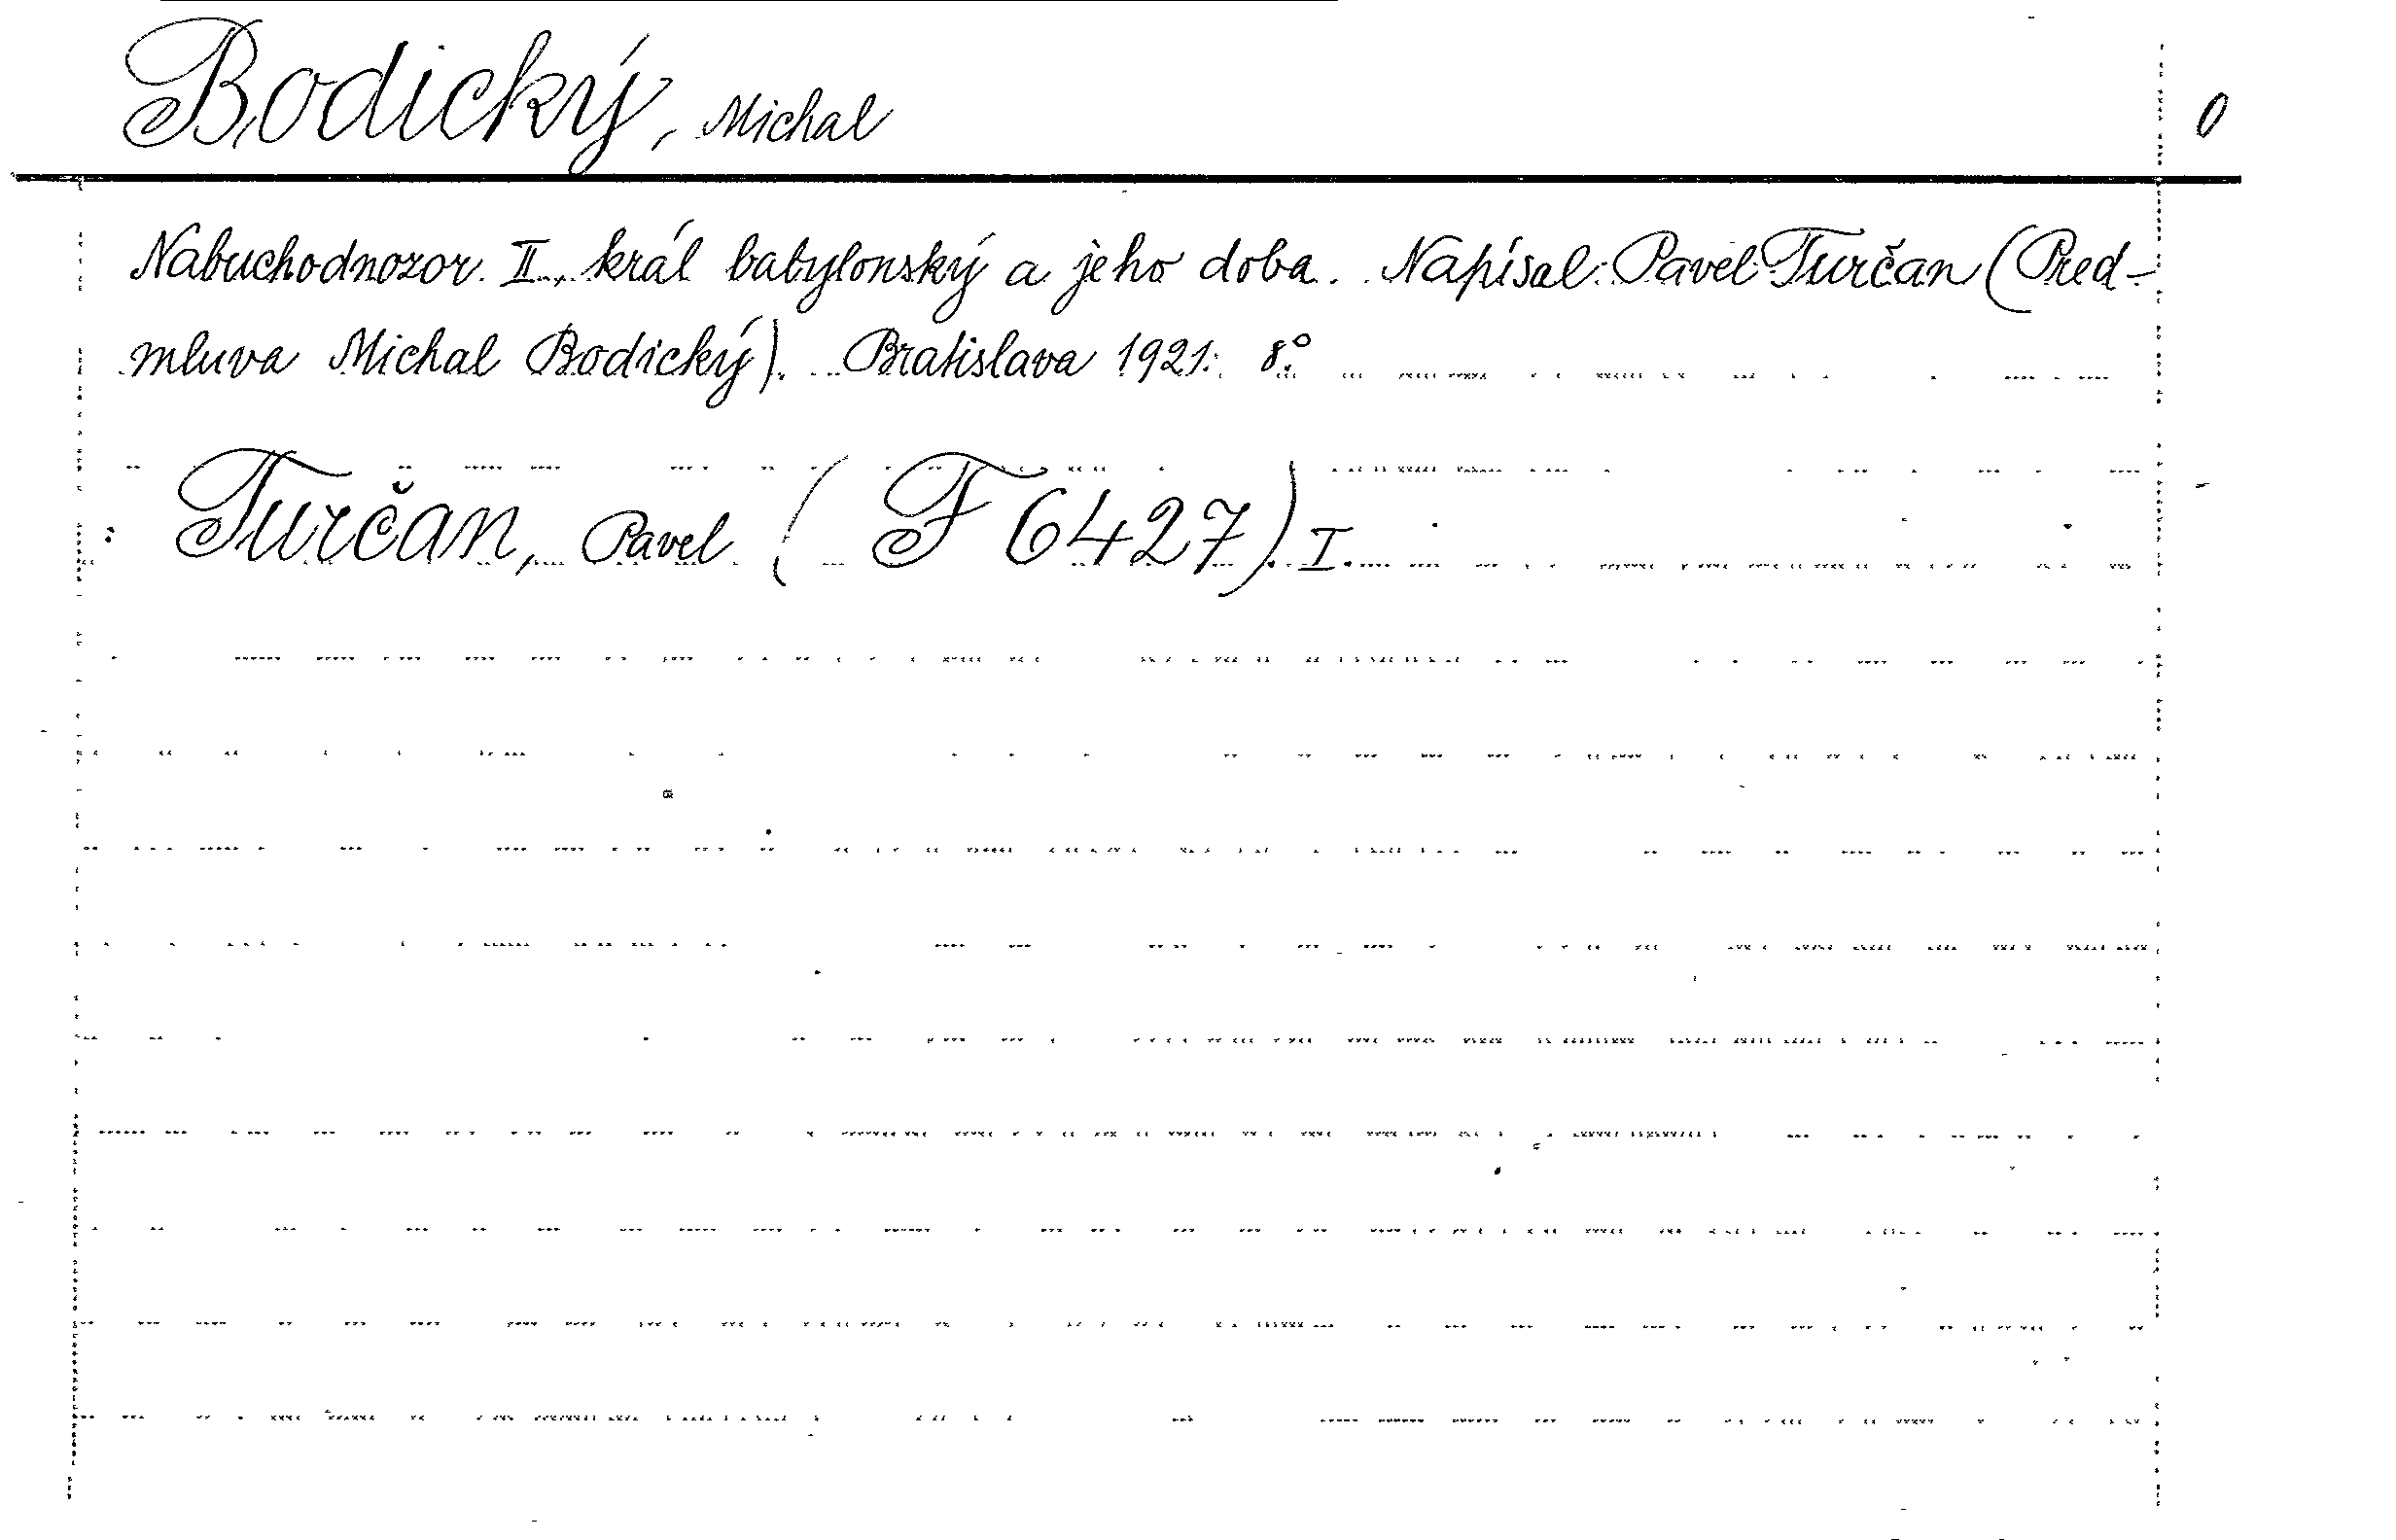 Bodický, Michal 0
Nabuchodnozor II., král babylonský a jeho doba. Napísal: Pavel Turčan (Pred-
mluva Michal Bodický). Bratislava 1921. 8°
: Turčan, Pavel (F 6427). I.